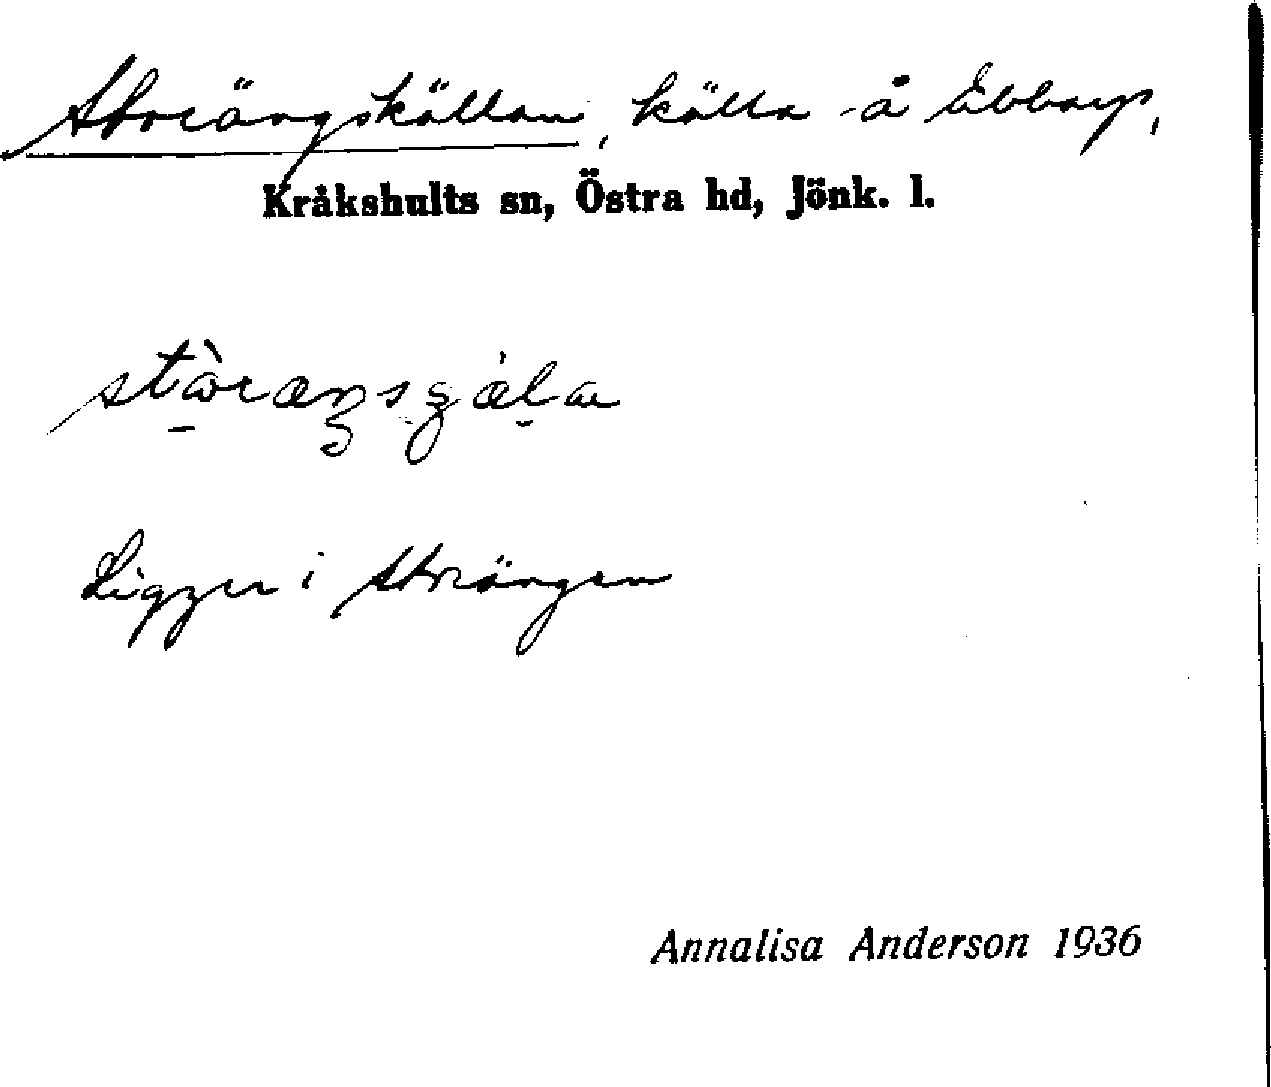 Storängskällan, källa å Ebbarp,
Kråkshults sn, Östra hd, Jönk. l.
Ligger i Storängen
Annalisa Anderson 1936